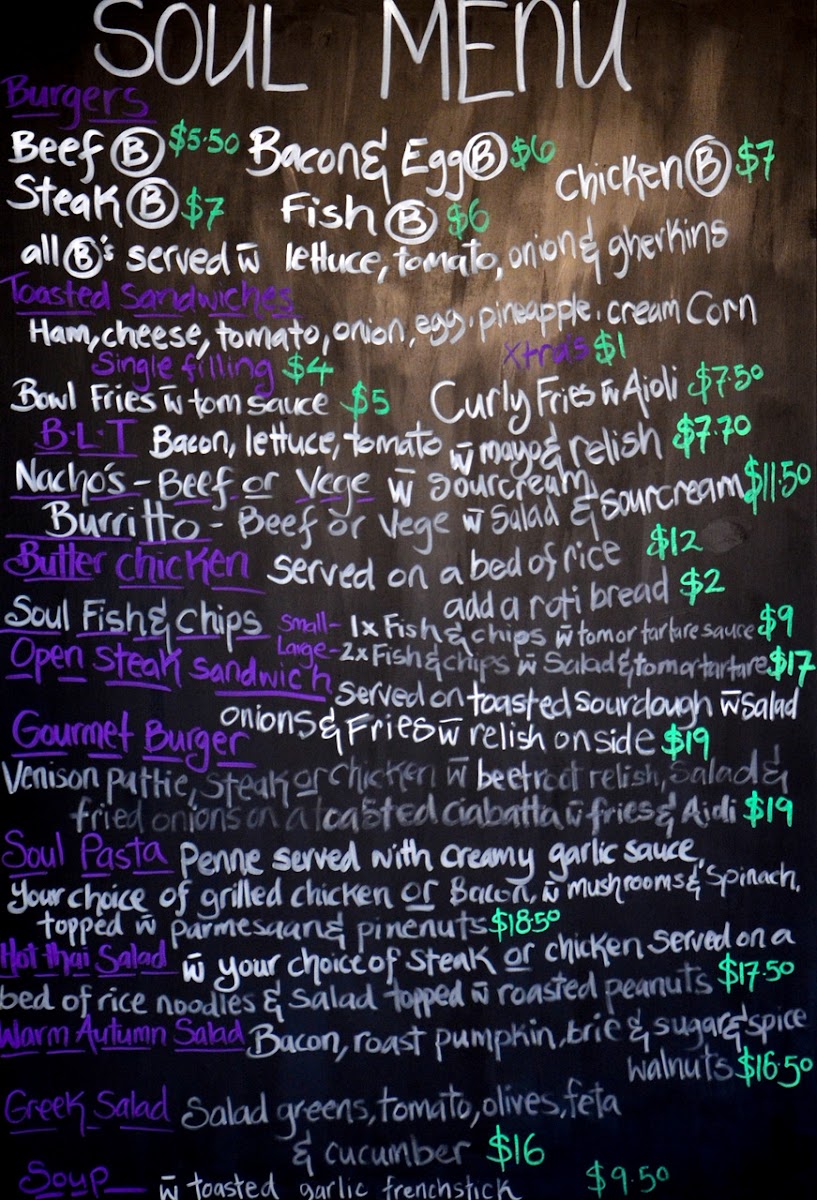 SOUL MENU
Burgers
Beef Ⓑ $5.50 Bacon & Egg Ⓑ $6 Chicken Ⓑ $7
Steak Ⓑ $7 Fish Ⓑ $6
all Ⓑ's served w̄ lettuce, tomato, onion & gherkins
Toasted Sandwiches
Ham, cheese, tomato, onion, egg, pineapple, cream Corn
Single filling $4 Xtra's $1
Bowl Fries w̄ tom sauce $5 Curly Fries w̄ Aioli $7.50
B.L.T Bacon, lettuce, tomato w̄ mayo & relish $7.70
Nacho's - Beef or Vege w̄ sourcream, $11.50
Burritto - Beef or Vege w̄ Salad & sourcream
Butter chicken served on a bed of rice $12
add a roti bread $2
Soul Fish & Chips Small - 1x Fish & chips w̄ tom or tartare sauce $9
Large - 2x Fish & chips w̄ Salad & tom or tartare $17
Open Steak Sandwich served on toasted sourdough w̄ Salad
onions & Fries w̄ relish on side $19
Gourmet Burger
Venison pattie, steak or chicken w̄ beetroot relish, salad &
fried onions on a toasted ciabatta w̄ fries & Aioli $19
Soul Pasta Penne served with creamy garlic sauce,
your choice of grilled chicken or Bacon, w̄ mushrooms & Spinach,
topped w̄ parmesaan & pinenuts $18.50
Hot thai Salad w̄ your choice of steak or chicken served on a
bed of rice noodles & Salad topped w̄ roasted peanuts $17.50
Warm Autumn Salad Bacon, roast pumpkin, brie & sugar & spice
walnuts $16.50
Greek Salad Salad greens, tomato, olives, feta
& cucumber $16
Soup w̄ toasted garlic frenchstick $9.50